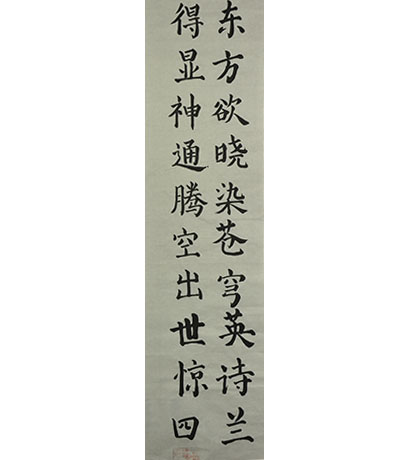 东方欲晓染苍穹英诗兰
得显神通腾空出世惊四